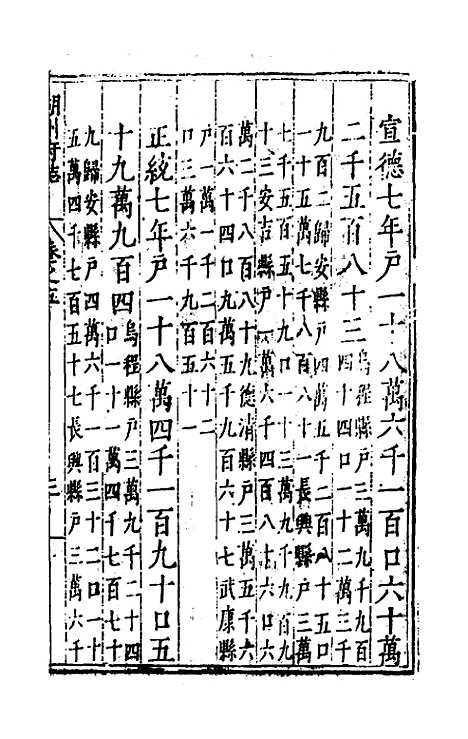 宣德七年戶一十八萬六千一百口六十萬
二千五百八十三烏程縣戶三萬九千九百
四十四口一十二萬三千
九百二歸安縣戶四萬五千二百八十五口
一十五萬七千八百八十一長興縣戶三萬
七千五百五十九口一十三萬九千九百九
十三安吉縣戶一萬六千四百八十六口六
萬二千八百八十九德清縣戶三萬五千六
百六十四口九萬五千九百六十七武康縣
戶一萬一千二百六十二
口三萬六千九百五十一
正統七年戶一十八萬四千一百九十口五
十九萬九百四烏程縣戶三萬九千二十四
口一十一萬四千七百七十
九歸安縣戶四萬六千一百三十二口一十
五萬四千七百五十七長興縣戶三萬六千
湖州府志
卷之五